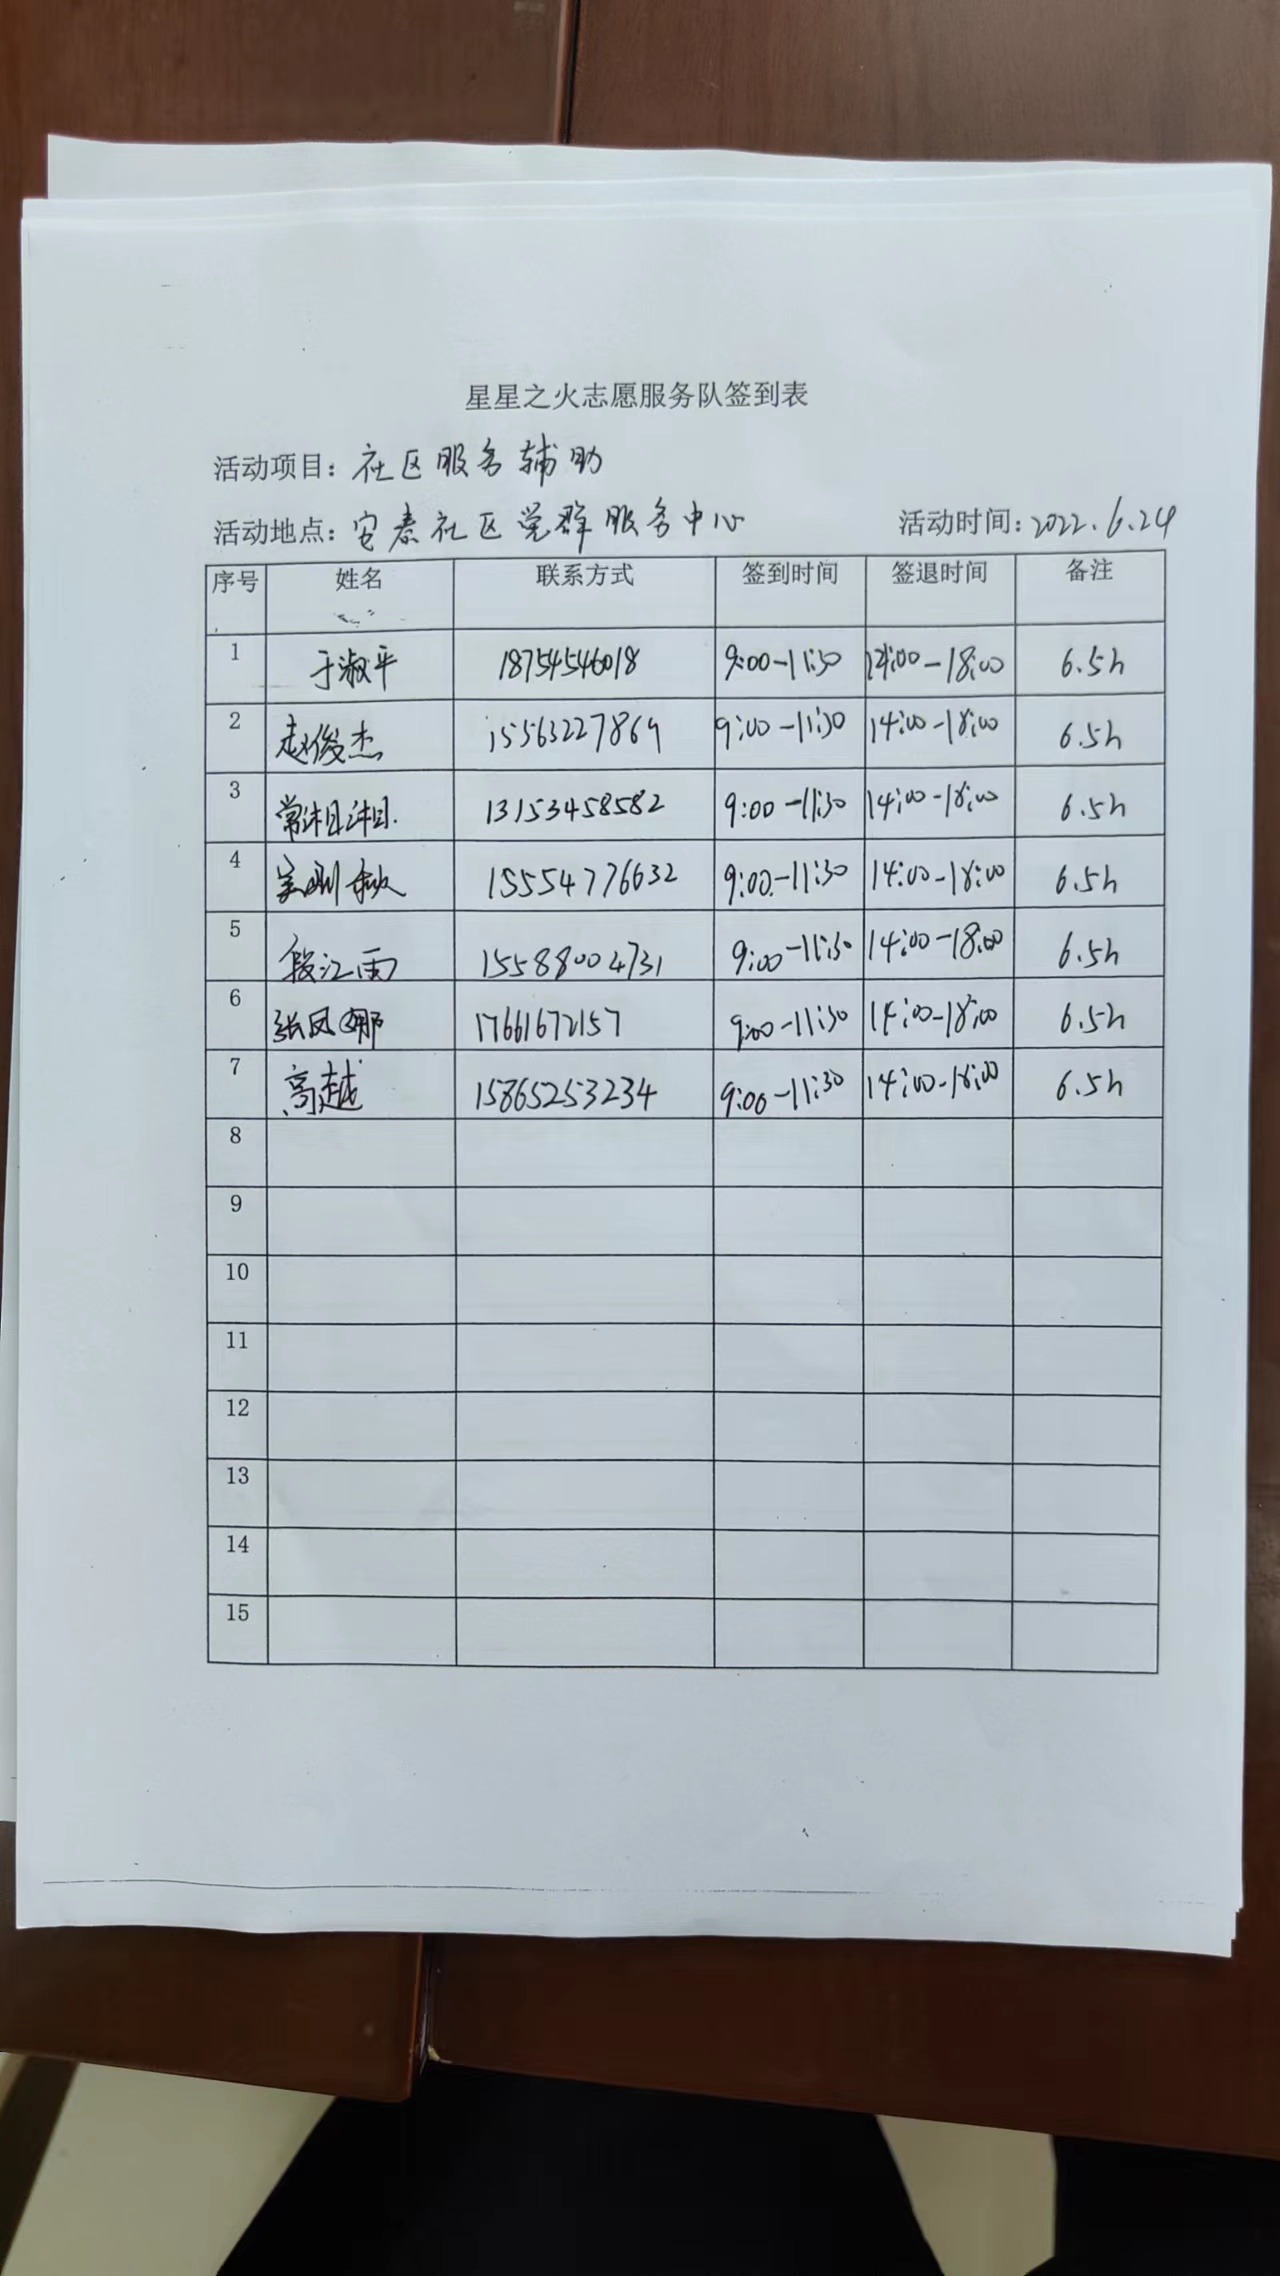 星星之火志愿服务队签到表
活动项目：社区服务辅助
活动地点：安泰社区党群服务中心 活动时间：2022.6.24
序号 姓名 联系方式 签到时间 签退时间 备注
1 于淑平 18754546018 9:00-11:30 14:00-18:00 6.5h
2 赵俊杰 15563227869 9:00-11:30 14:00-18:00 6.5h
3 常相相 13153458582 9:00-11:30 14:00-18:00 6.5h
4 15554776632 9:00-11:30 14:00-18:00 6.5h
5 段江雨 15588004731 9:00-11:30 14:00-18:00 6.5h
6 张凤娜 17661672157 9:00-11:30 14:00-18:00 6.5h
7 高越 15865253234 9:00-11:30 14:00-18:00 6.5h
8
9
10
11
12
13
14
15